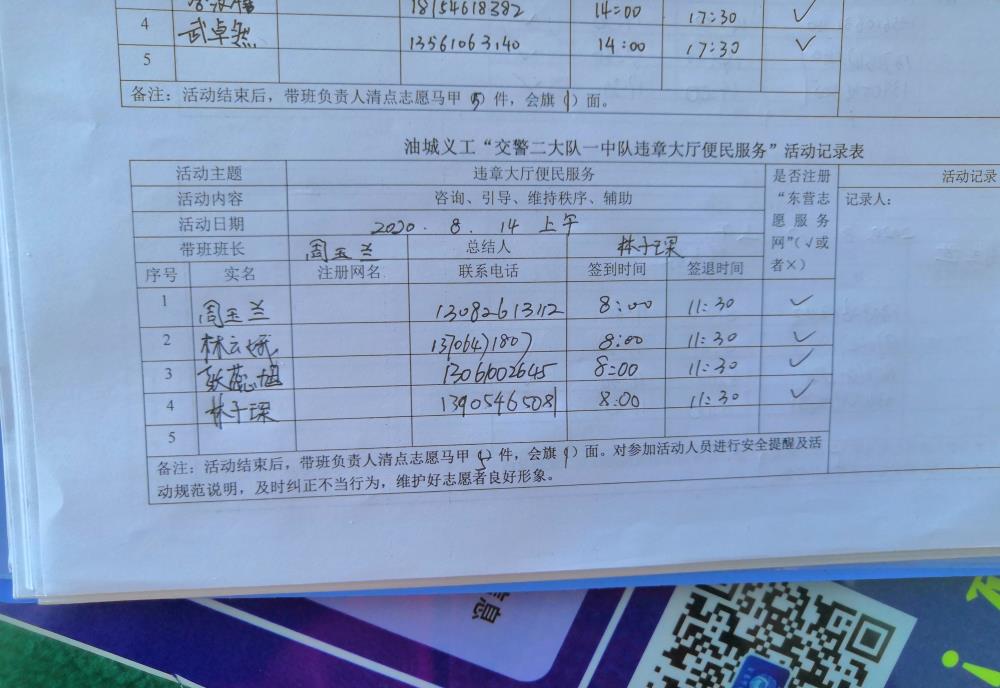 18154618382 14:00 17:30 ✓
4 武卓然 13561063140 14:00 17:30 ✓
5
备注：活动结束后，带班负责人清点志愿马甲（5）件，会旗（1）面。
油城义工“交警二大队一中队违章大厅便民服务”活动记录表
活动主题 违章大厅便民服务 是否注册“东营志愿服务网”（√或者×） 活动记录
活动内容 咨询、引导、维持秩序、辅助 记录人：
活动日期 2020.8.14 上午
带班班长 周玉兰 总结人 林子琛
序号 实名 注册网名 联系电话 签到时间 签退时间
1 周玉兰 13082613112 8:00 11:30 ✓
2 林云娥 8:00 11:30 ✓
3 13061002645 8:00 11:30 ✓
4 林子琛 13905465081 8:00 11:30 ✓
5
备注：活动结束后，带班负责人清点志愿马甲（5）件，会旗（1）面。对参加活动人员进行安全提醒及活
动规范说明，及时纠正不当行为，维护好志愿者良好形象。
信息